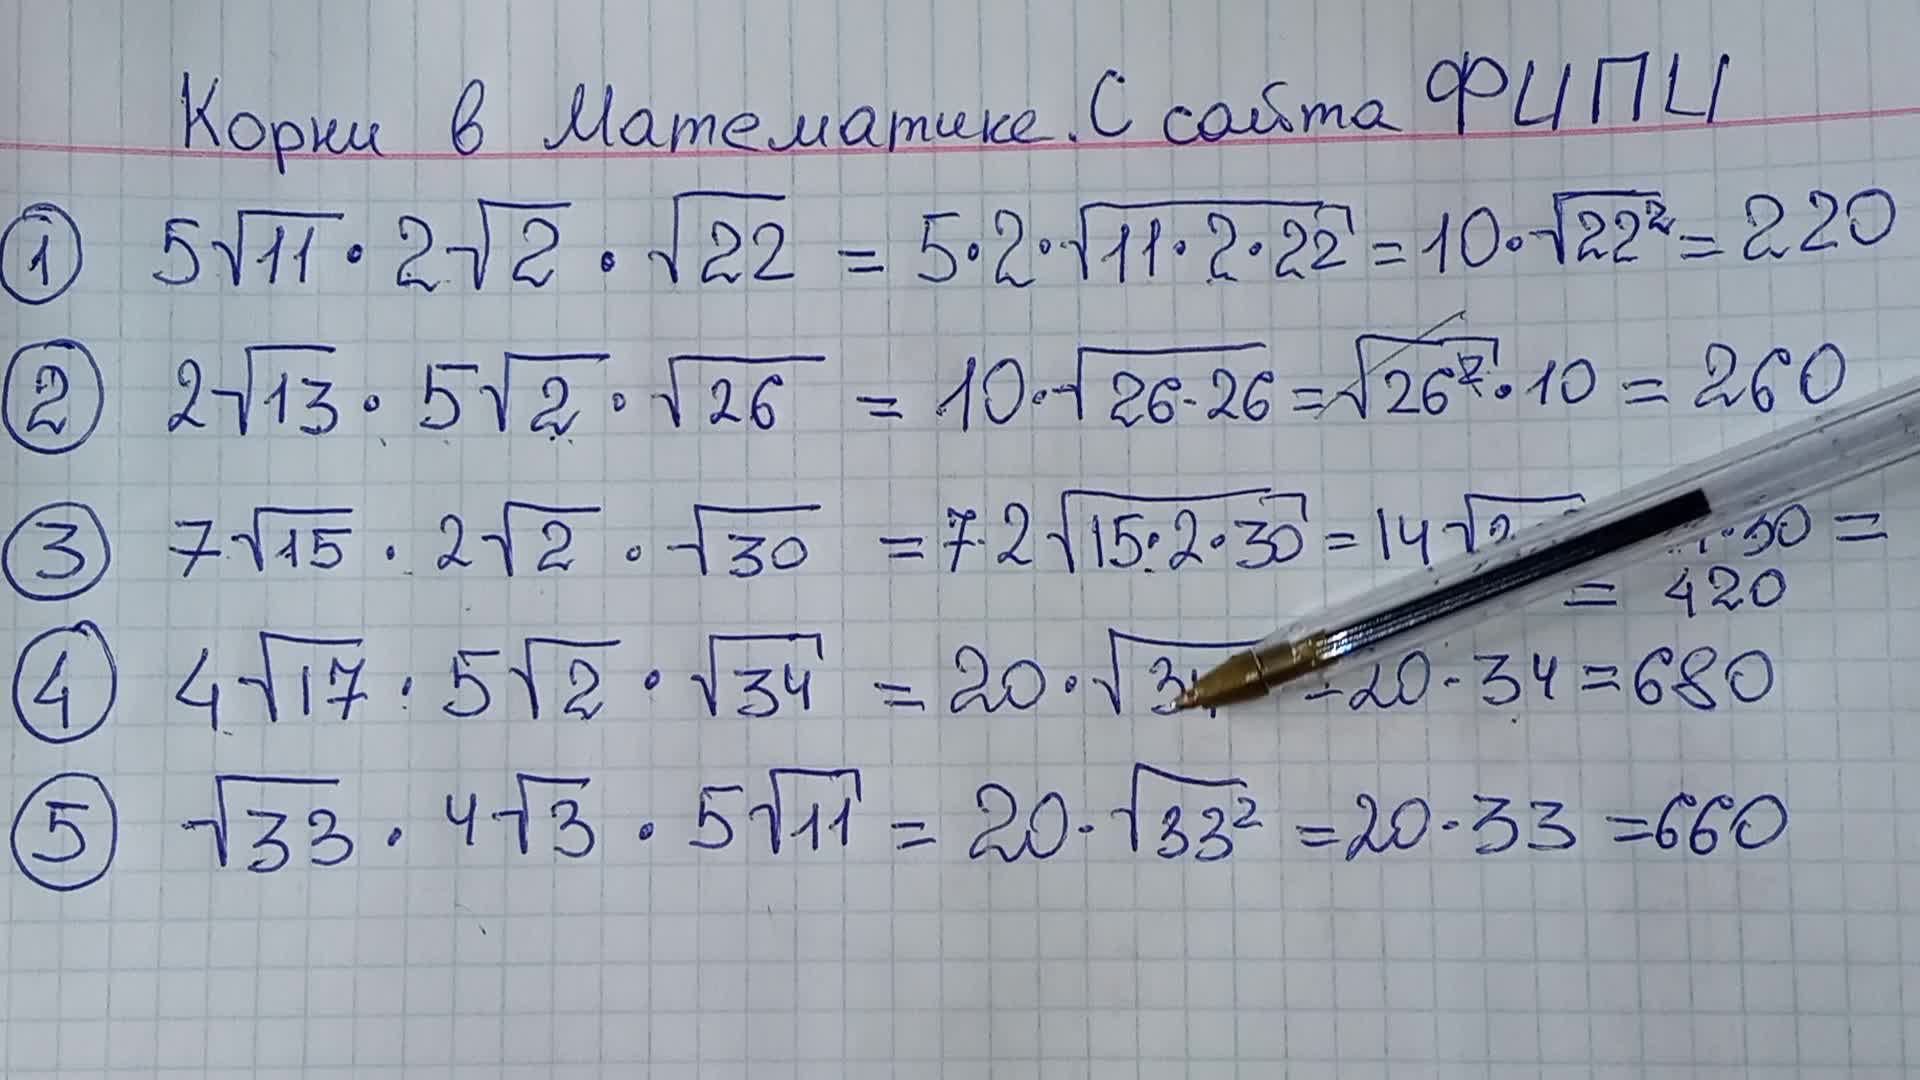 Корни в Математике. С сайта ФИПИ
① 5√11 · 2√2 · √22 = 5·2·√11·2·22 = 10·√22² = 220
② 2√13 · 5√2 · √26 = 10·√26·26 = √26² · 10 = 260
③ 7√15 · 2√2 · √30 = 7·2√15·2·30 = 14√ ·30 =
= 420
④ 4√17 · 5√2 · √34 = 20·√3 = 20·34 = 680
⑤ √33 · 4√3 · 5√11 = 20·√33² = 20·33 = 660